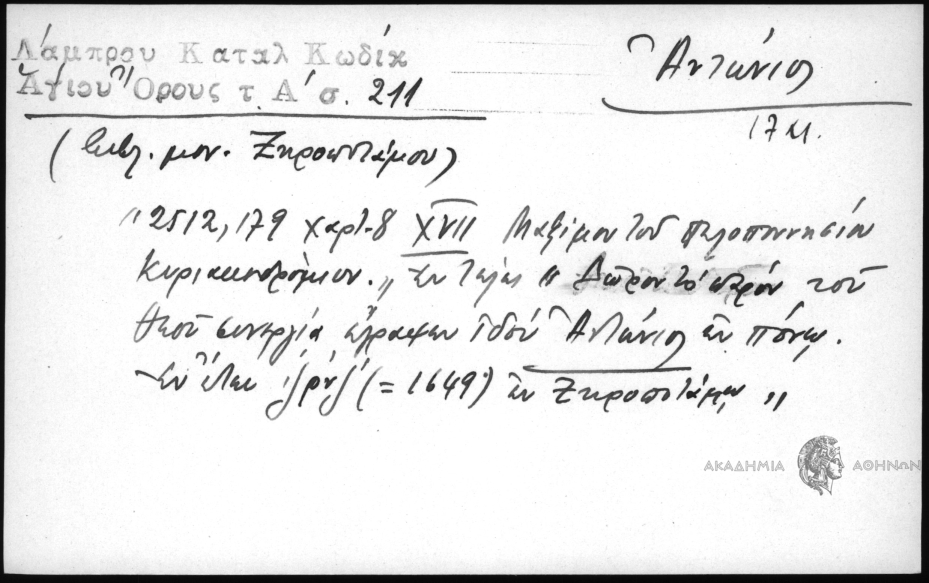 Λάμπρου Καταλ Κωδίκ
Ἁγίου Ὄρους τ. Α΄ σ. 211
Ἀντώνιος
17 αι.
(Βιβλ. μον. Ξηροποτάμου)
"2512, 179 χαρτ. 8 XVII Μαξίμου τοῦ Πελοποννησίου
Κυριακοδρόμιον. „ Ἐν τέλει " Δῶρον τὸ παρὸν τοῦ
Θεοῦ συνεργίᾳ ἔγραψεν ἰδοὺ Ἀντώνιος ἐν πόνῳ.
Ἐν ἔτει ͵ζρνζ΄ (= 1649) ἐν Ξηροποτάμῳ „
ΑΚΑΔΗΜΙΑ ΑΘΗΝΩΝ